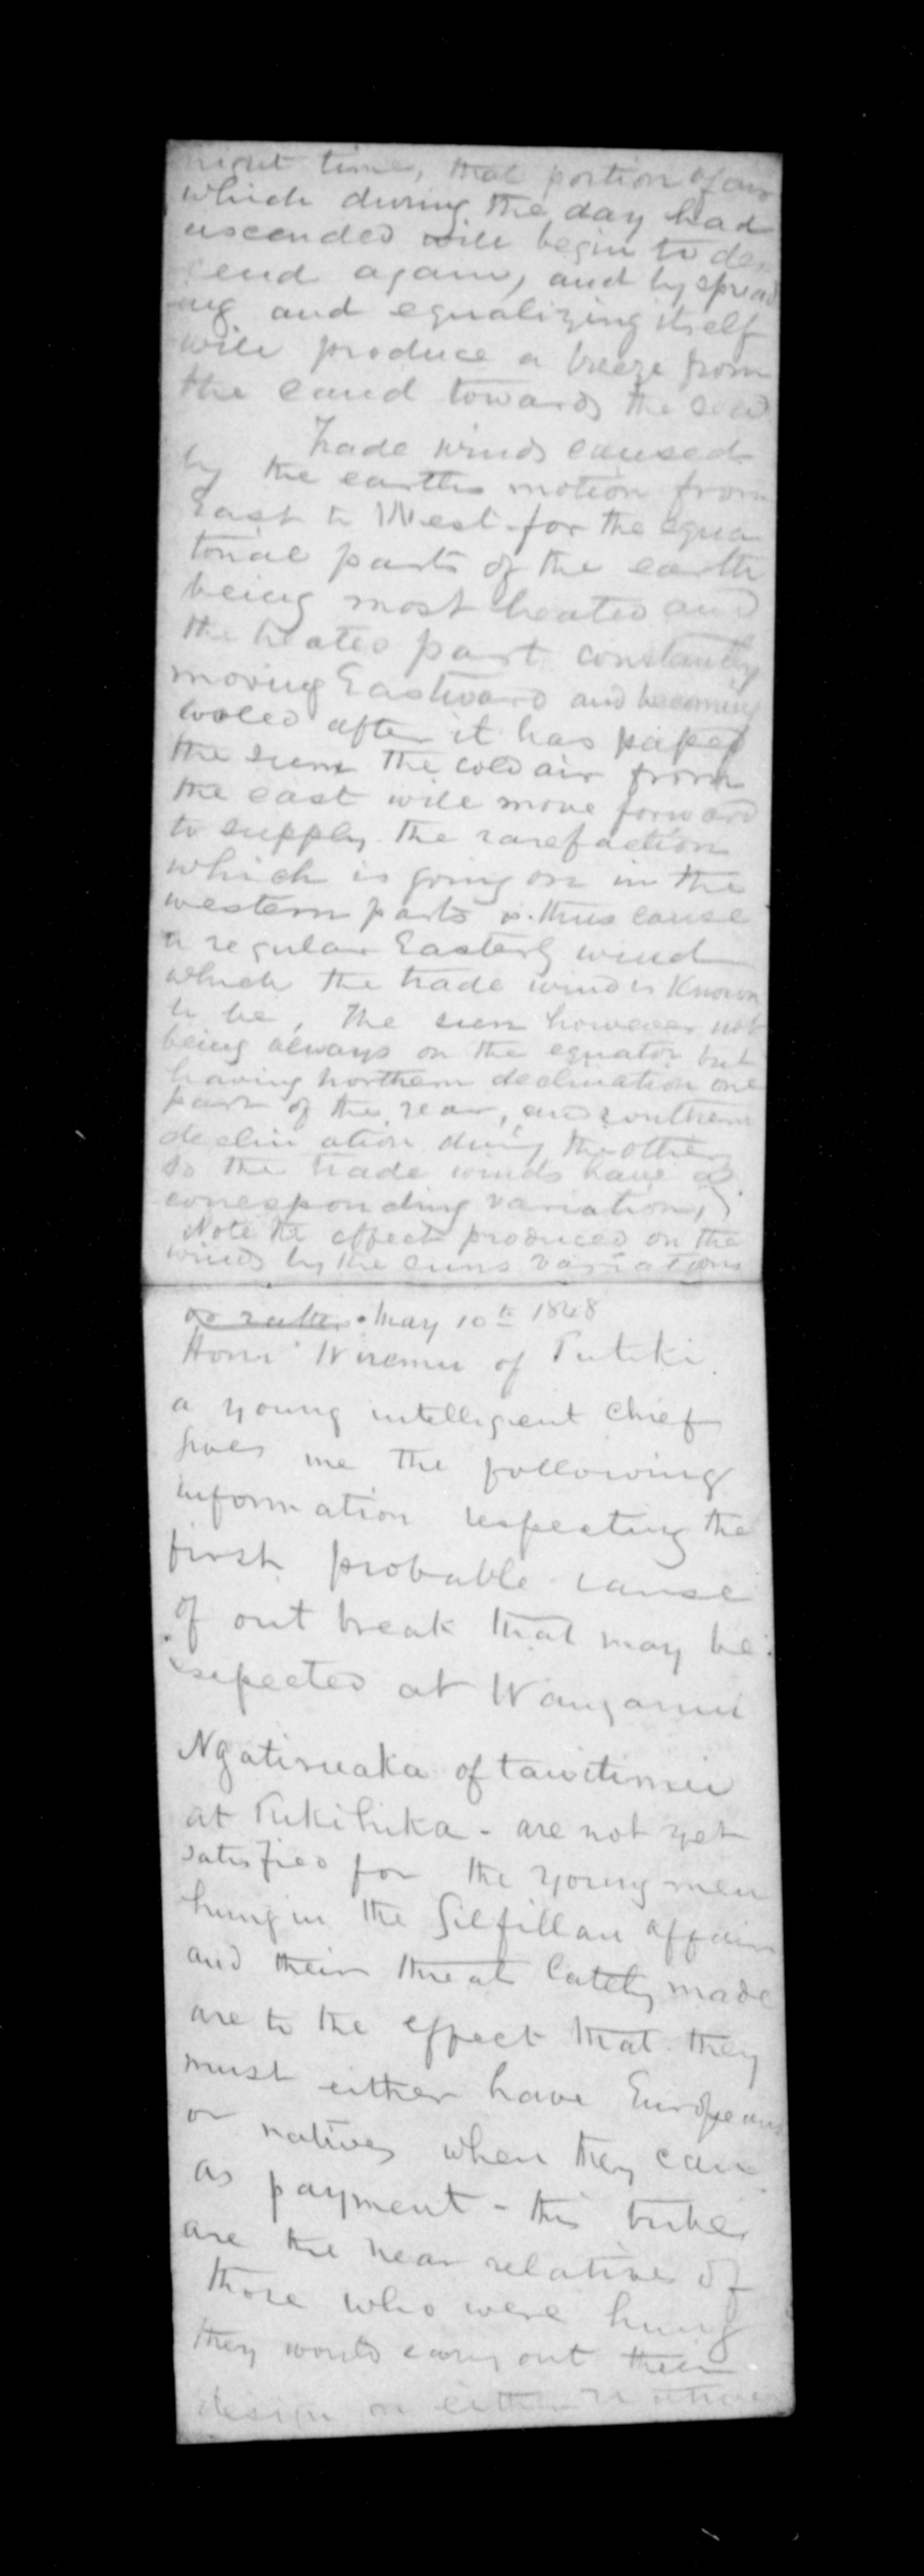 night time, that portion of air
which during the day had
ascended will begin to des
cend again, and by spread
ing and equalizing itself
will produce a breeze from
the land towards the sea
Trade winds caused
by the earths motion from
East to West for the equa
torial parts of the earth
being most heated and
the heated part constantly
moving Eastward and becoming
cooled after it has passed
the sun the cold air from
the east will move forward
to supply the rarefaction
which is going on in the
western parts & thus cause
a regular Easterly wind
which the trade wind is known
to be, The sun however not
being always on the equator but
having northern declination one
part of the year, and southern
declin ation during the other
so the trade winds have a
corresponding variation,
Note the effect produced on the
winds by the suns variations
May 10th 1848
Honi Wiremu of Putiki
a young intelligent chief
gives me the following
information respecting the
first probable cause
of out break that may be
expected at Wanganui
Ngatiruaka of tawitinui
at Pukihika - are not yet
satisfied for the young men
hung in the Gilfillan affair
and their threat lately made
are to the effect that they
must either have Europeans
or natives when they can
as payment - this tribe
are the near relative of
those who were hung
they would carry out their
design on either natives